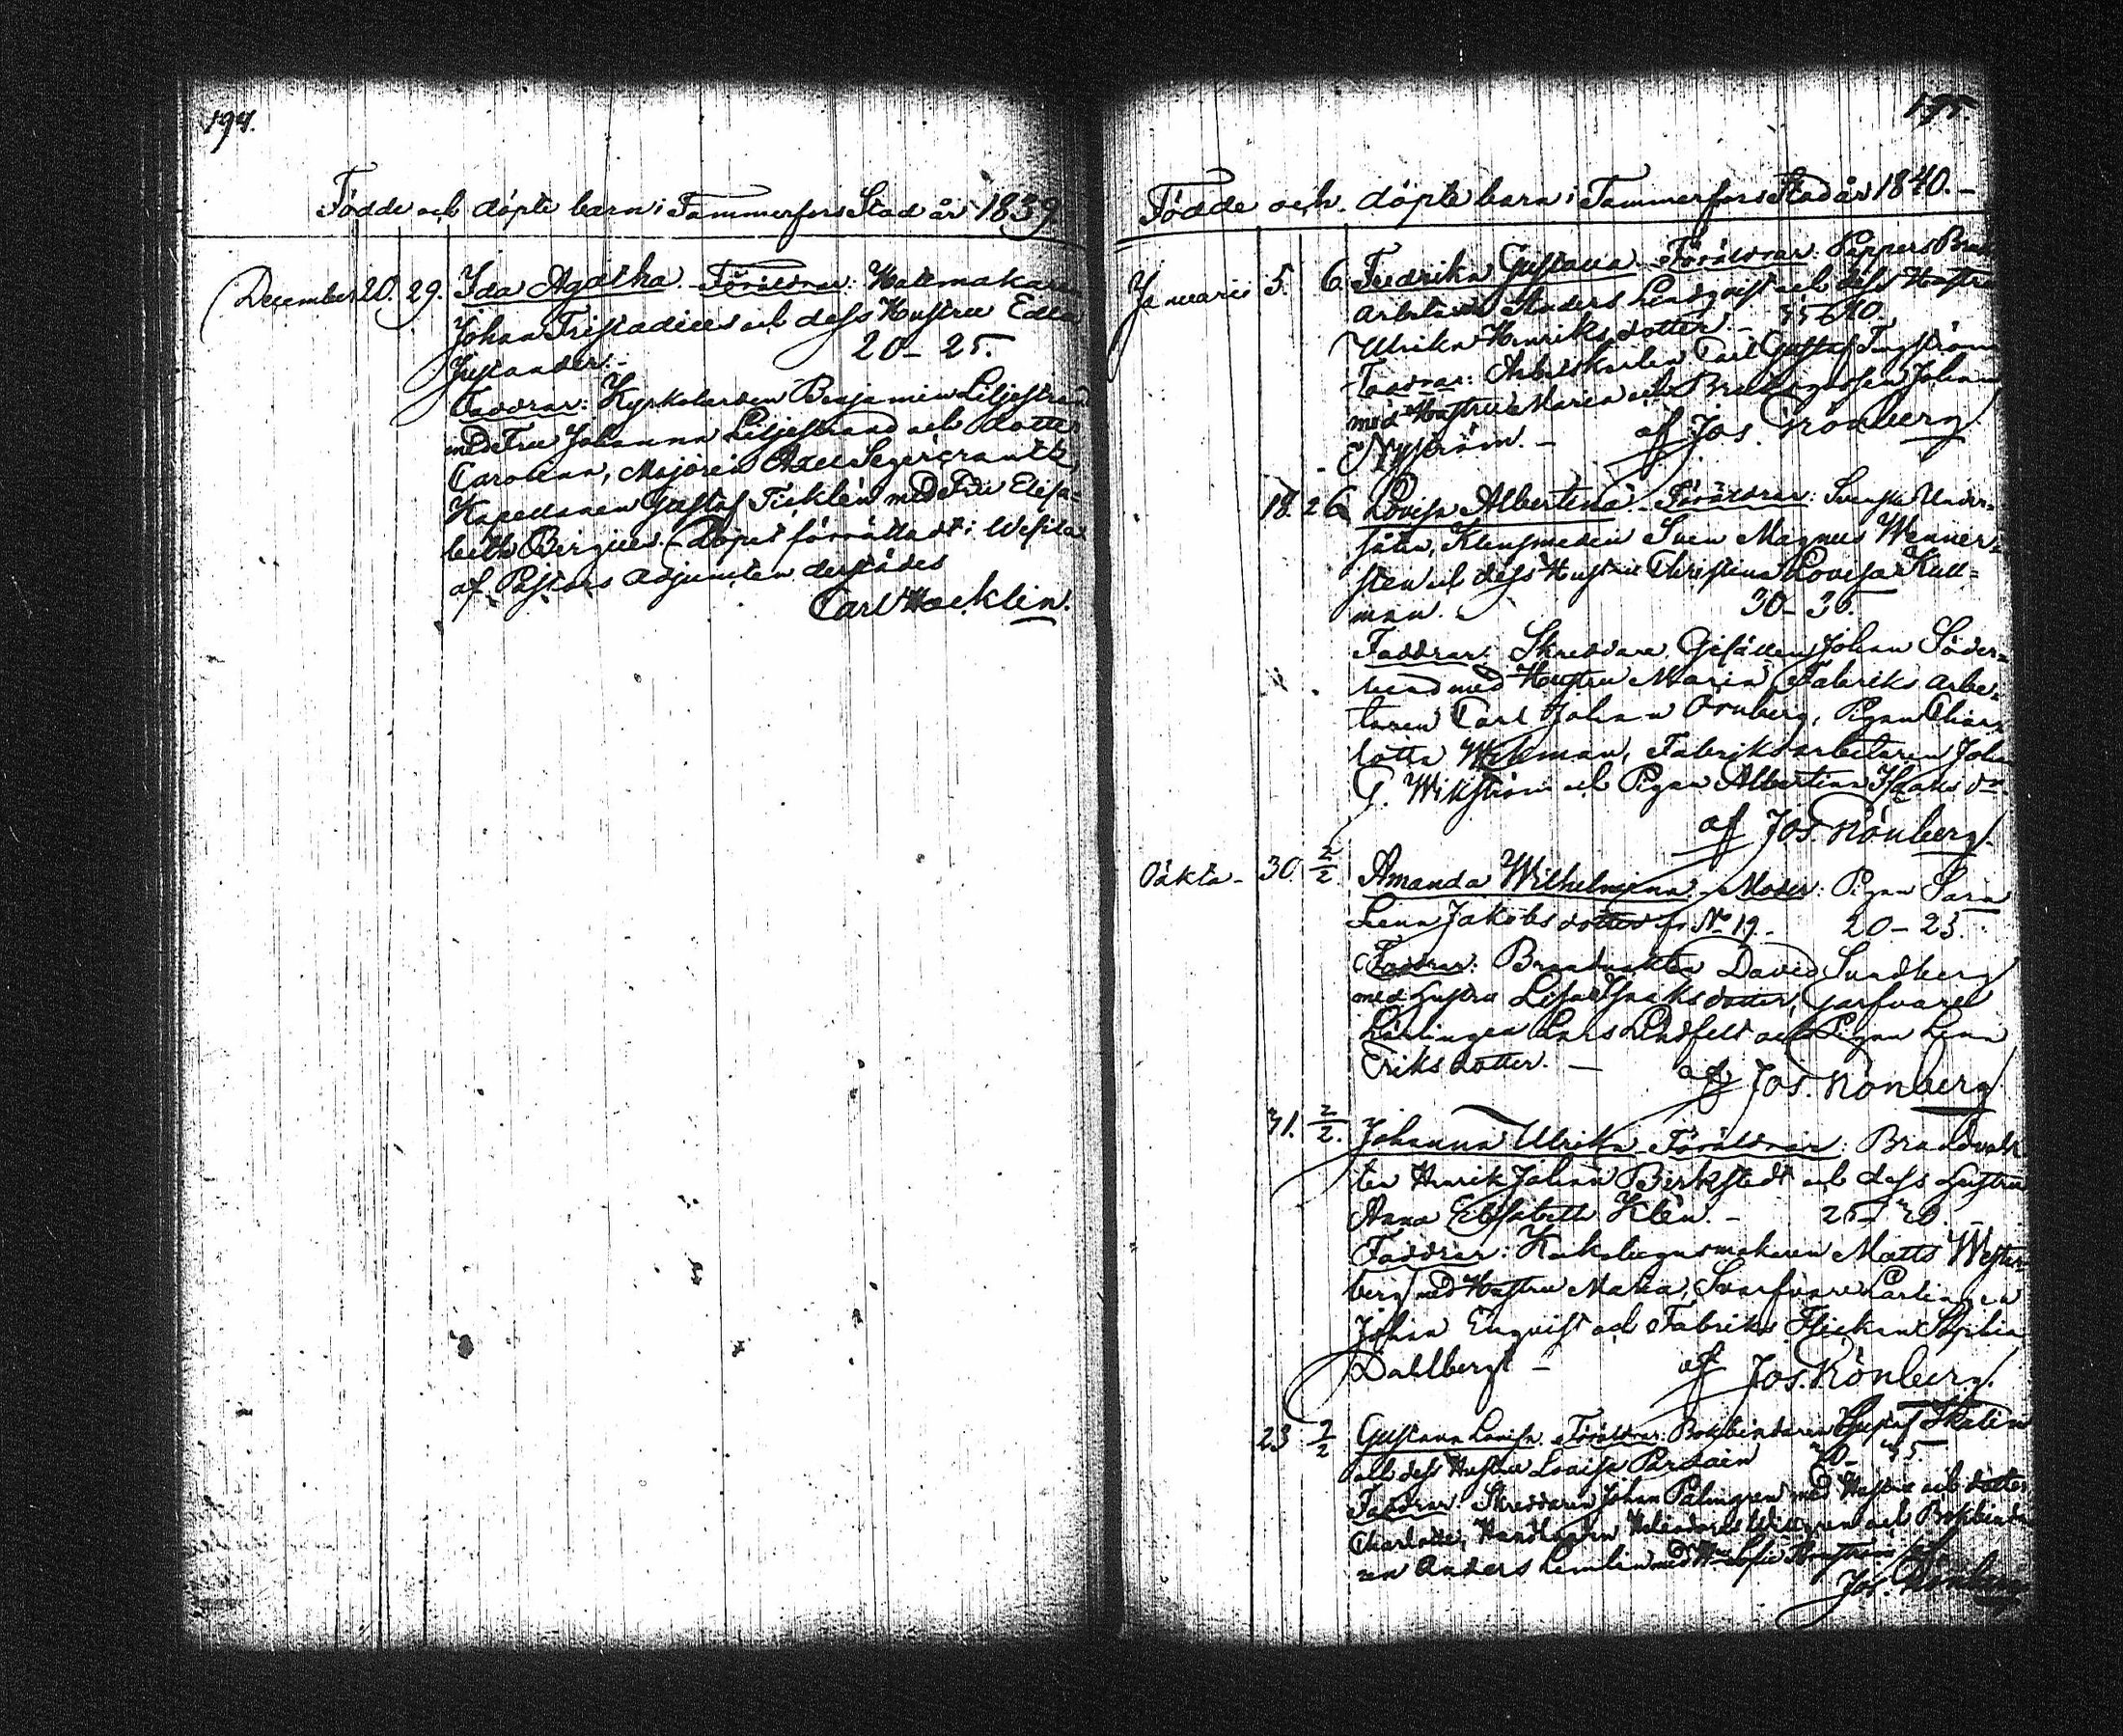 194.
Födde och döpte barn i Tammerfors Stad år 1839
December 20. 29. Ida Agatha. Föräldrar: Hattmakare
Johan Tristadius och dess Hustru Edla
Justander.- 20-25.
Faddrar: Kyrkoherden Benjamin Liljestrand
med Fru Johanna Liljestrand och dotter
Carolina, Majoren Axel Segercrantz
Kapellanen Gustaf Ticklén med Fru Elisa=
beth Bergius. Döpet förrättadt i Wesila
af Pastors Adjuncten derstädes
Carl Hæcklin.
195.
Födde och döpte barn i Tammerfors Stad år 1840.-
Januarii 5. 6. Fredrika Gustava. Föräldrar: Pappers Bruks
arbetaren Anders Lindqvist och dess Hustru
Ulrika Henriks dotter.- 35-40.
Faddrar: Arbetskarlen Carl Gustaf Engström
med Hustru Maria och Johan
E Nyström.- af Jos. Rönberg
18. 26 Lovisa Albertina. Föräldrar: Svenske Under-
såten, Klensmeden Sven Magnus Wenner=
sten och dess Hustru Christina Lovisa Kull=
man.- 30-35.
Faddrar: Skreddare Gesällen Johan Söder=
lund med Hustru Maria, Fabriks arbe=
taren Carl Johan Ornberg, Pigan Char=
lotta Wikman, Fabriksarbetaren Joha
G. Wikström och Pigan Albertina Isaks dr
af Jos. Rönberg.
Oäkta- 30. 2/2 Amanda Wilhelmina. Moder: Pigan Sara
Lena Jakobs dotter fr No 19.- 20-23.
Faddrar: Brandvakten David Sundberg
med hustru Lisa Isaks dotter, Garfvare
Lärlingen Lars Lindfelt och Pigan Lena
Eriks dotter.- af Jos. Rönberg
31. 2/2. Johanna Ulrika. Föräldrar: Brandvak
ten Henrik Johan Birkstedt och dess hustru
Anna Elisabeth Klén.-
Faddrar: Kakelugnsmakaren Matts Wester
berg med Hustru Maria, Svarfvare Lärlingen
Johan Enqvist och Fabriks Flickan Sophia
Dahlberg.- af Jos. Rönberg.
23 2/2 Gustava Lovisa. Föräldrar: Bokbindaren Gustaf Skalin
och dess Hustru Lovisa 35.
Faddrar: Skreddaren Johan Palmgren med Hustru och dotter
Charlotte, Handlanden och Bokbinda
ren Anders Lemlin med
Jos. Rönberg